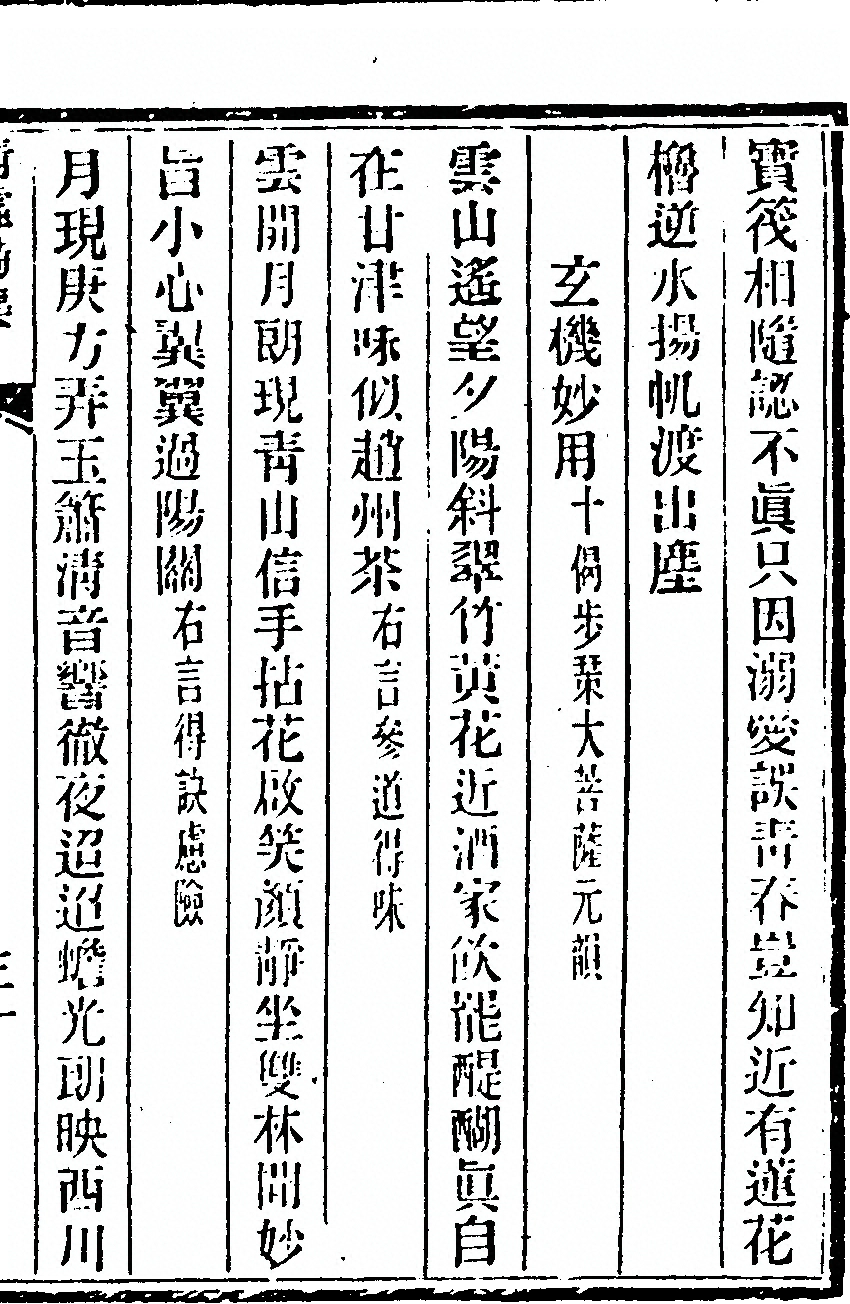 寶筏相隨認不眞只因溺愛誤青春豈知近有蓮花
櫓逆水揚帆渡出塵
玄機妙用十偈步棐大菩薩元韻
雲山遙望夕陽斜翠竹黃花近酒家欲覓醍醐眞自
在甘津味似趙州茶右言參道得味
雲開月朗現青山信手拈花啟笑顏靜坐雙林聞妙
旨小心翼翼過陽關右言得訣慮險
月現庚方弄玉簫清音響徹夜迢迢蟾光朗映西川